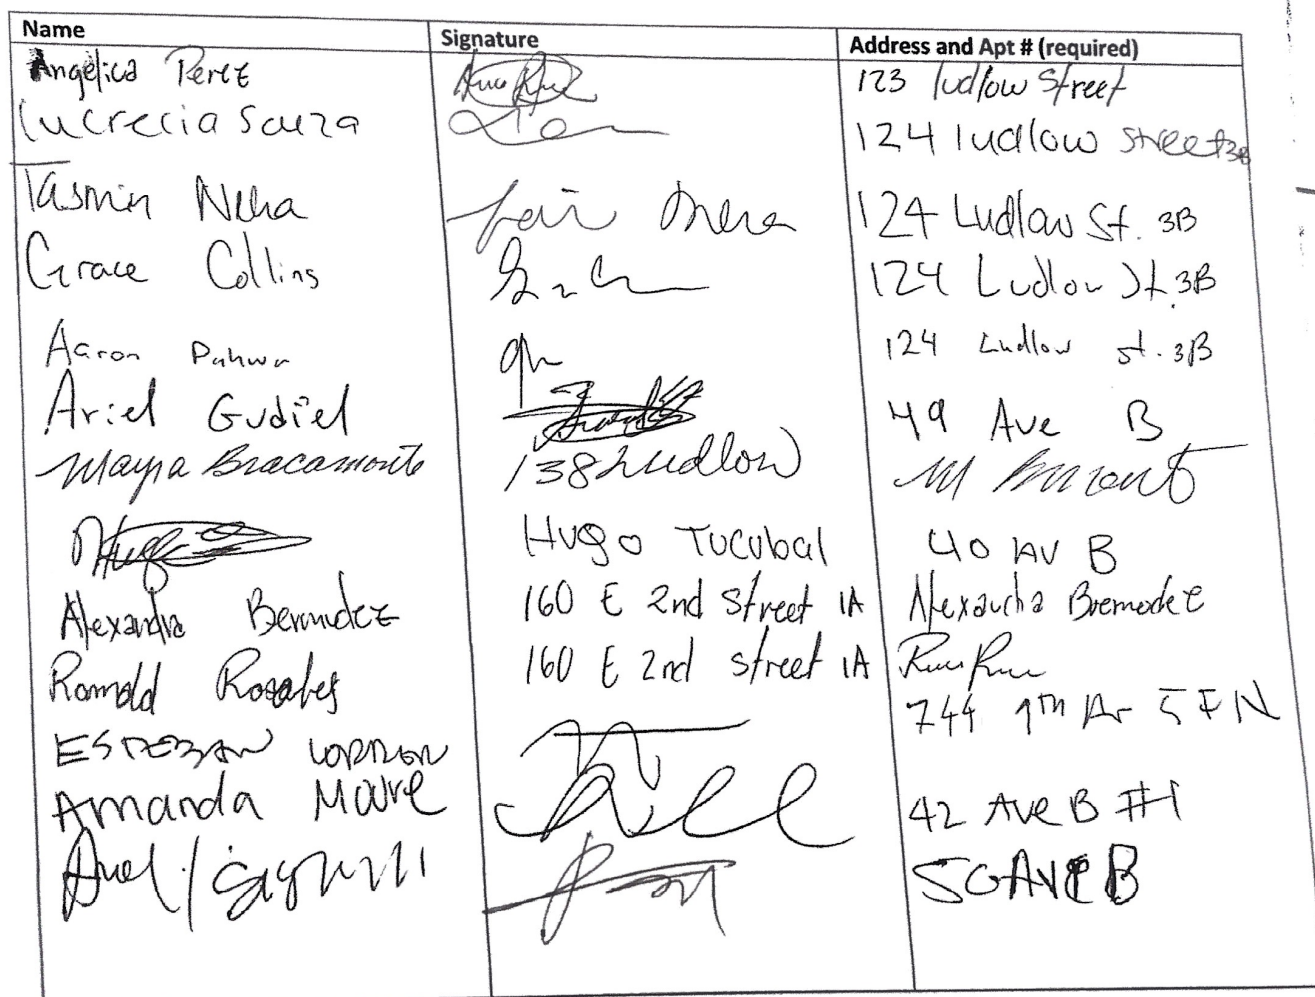 Name Signature Address and Apt # (required)
Angelica Perez 123 ludlow Street
Lucrecia Souza 124 ludlow street 3B
Tasmin Neha 124 Ludlow St. 3B
Grace Collins 124 Ludlow St. 3B
Aaron Pahwa 124 Ludlow st. 3B
Ariel Gudiel 49 Ave B
Mayra Bracamonte 138 Ludlow
Hugo Tucubal 40 AV B
Alexandra Bermudez 160 E 2nd Street 1A
Ronald Rosales 160 E 2nd street 1A
ESTEBAN 744 9th Av 5FN
Amanda Moore 42 Ave B #1
Ave B